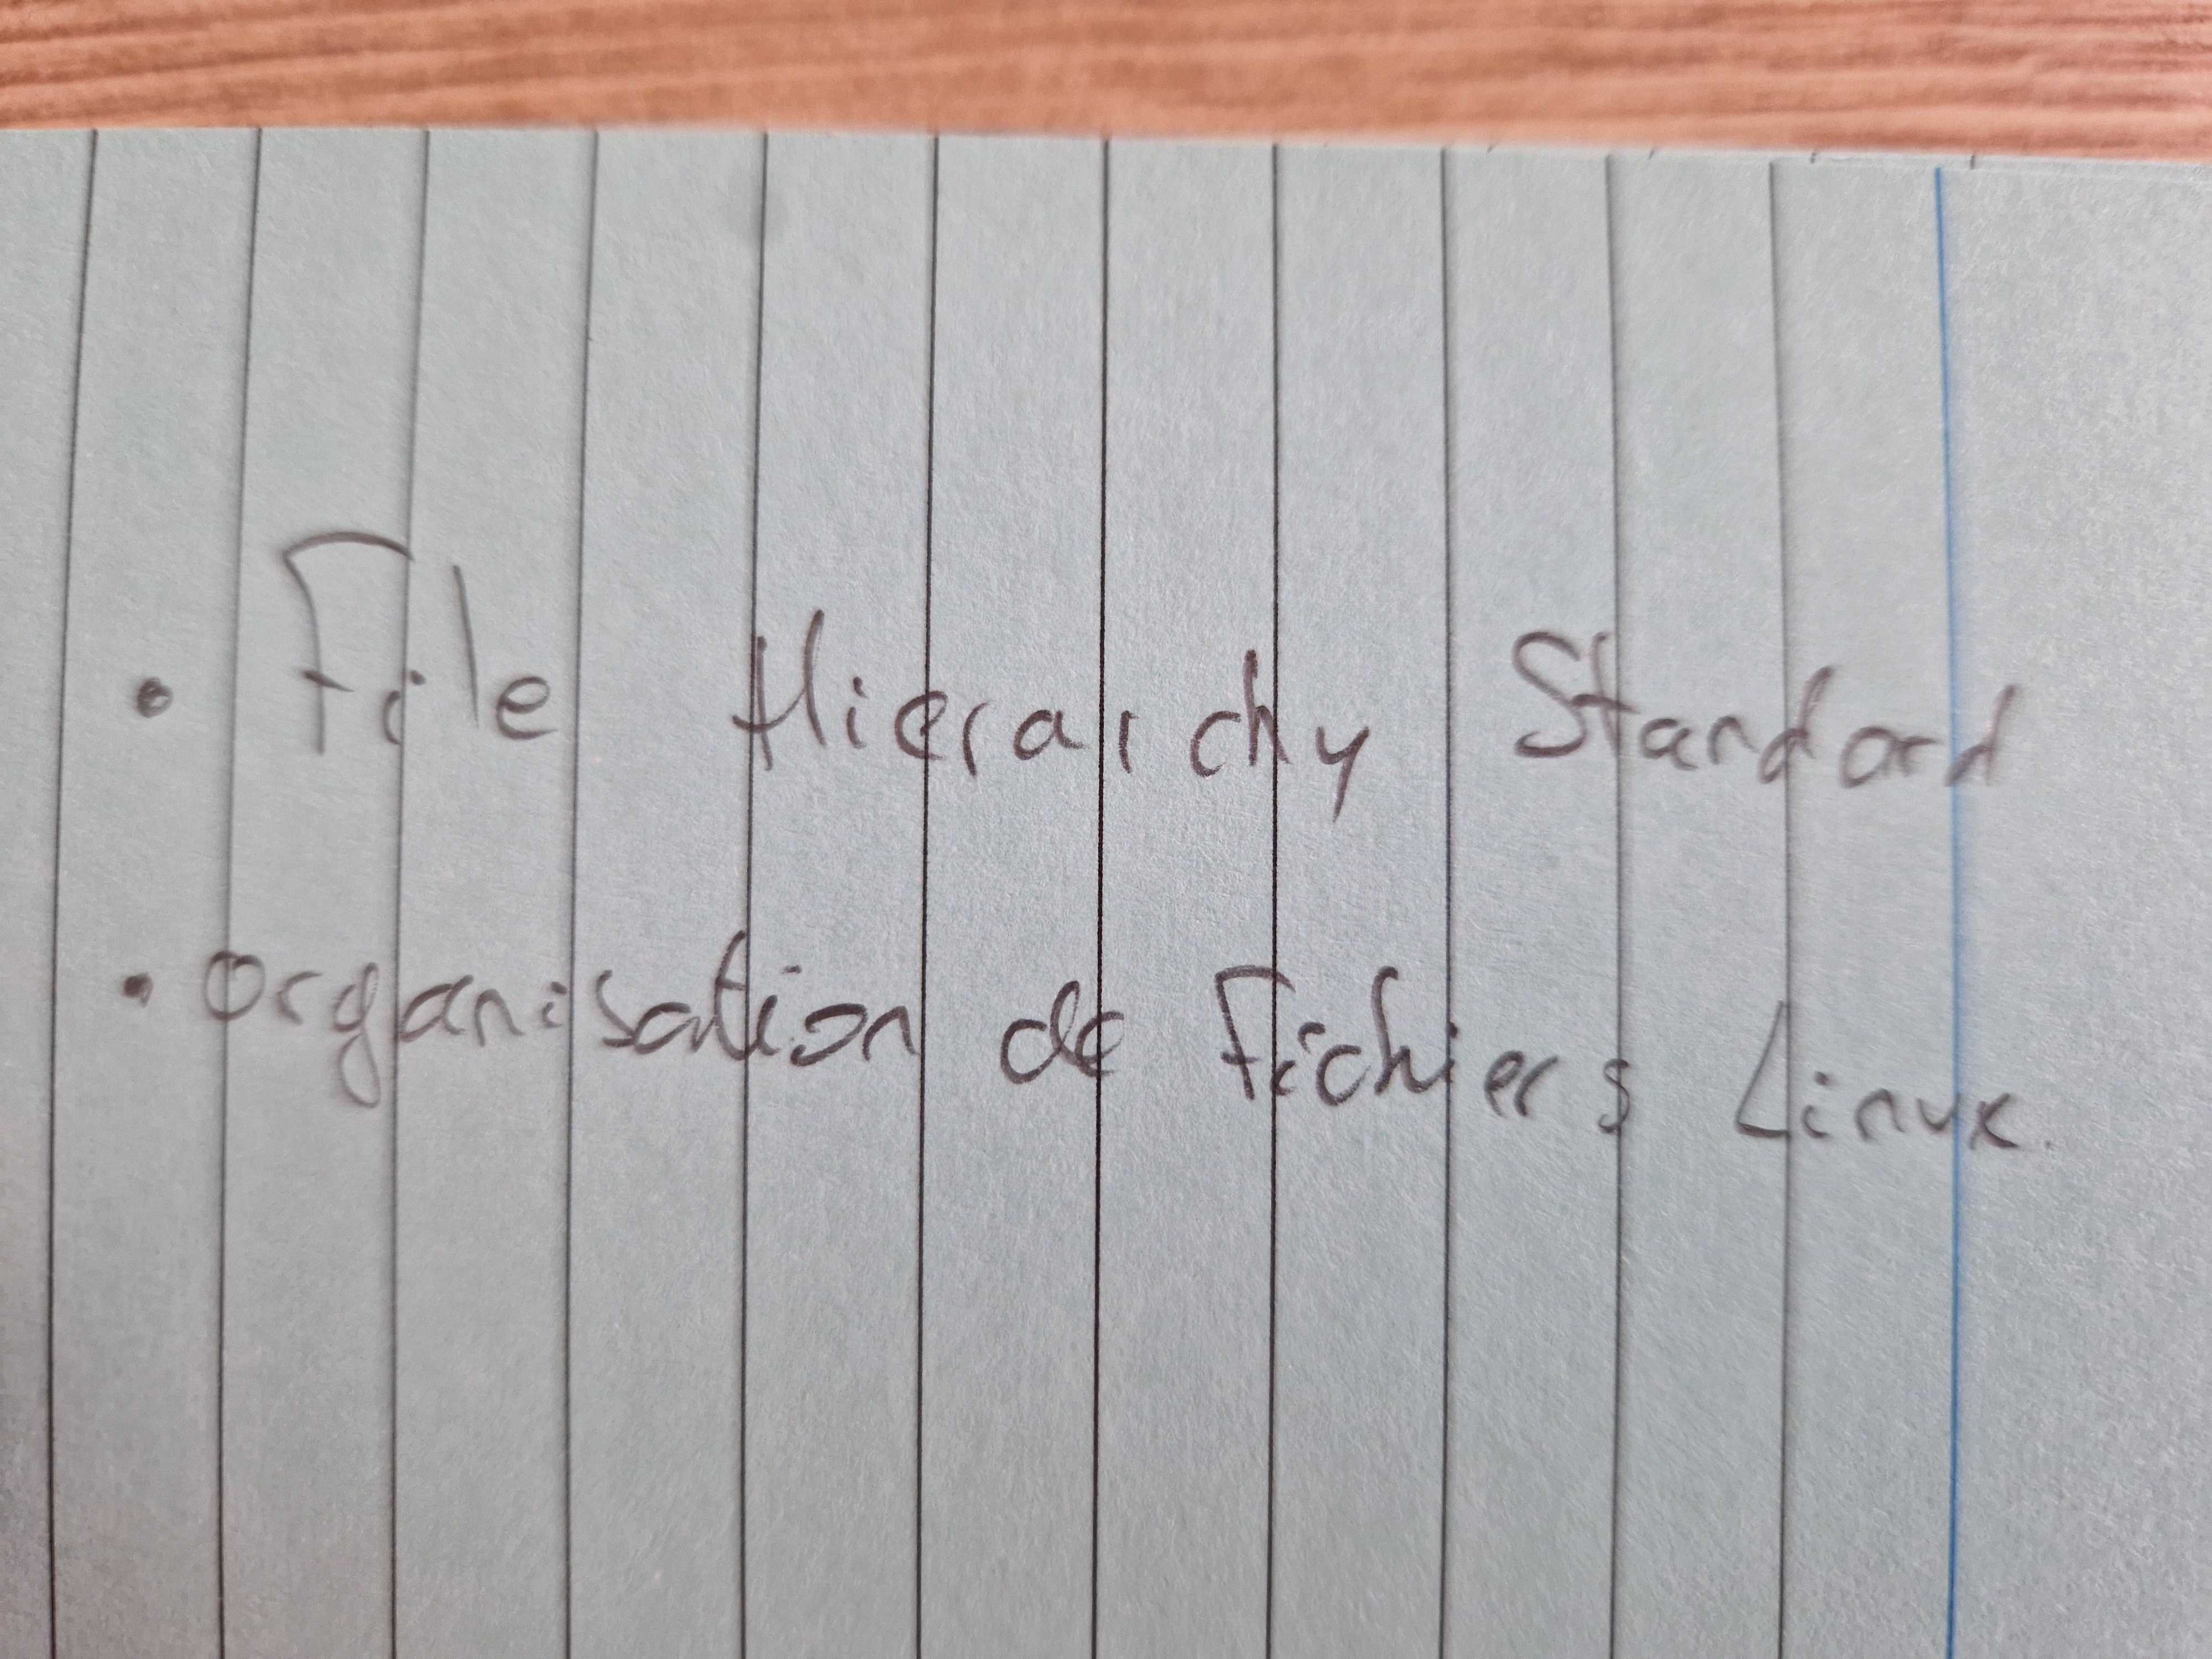 • File Hierarchy Standard
• organisation de Fichiers Linux.